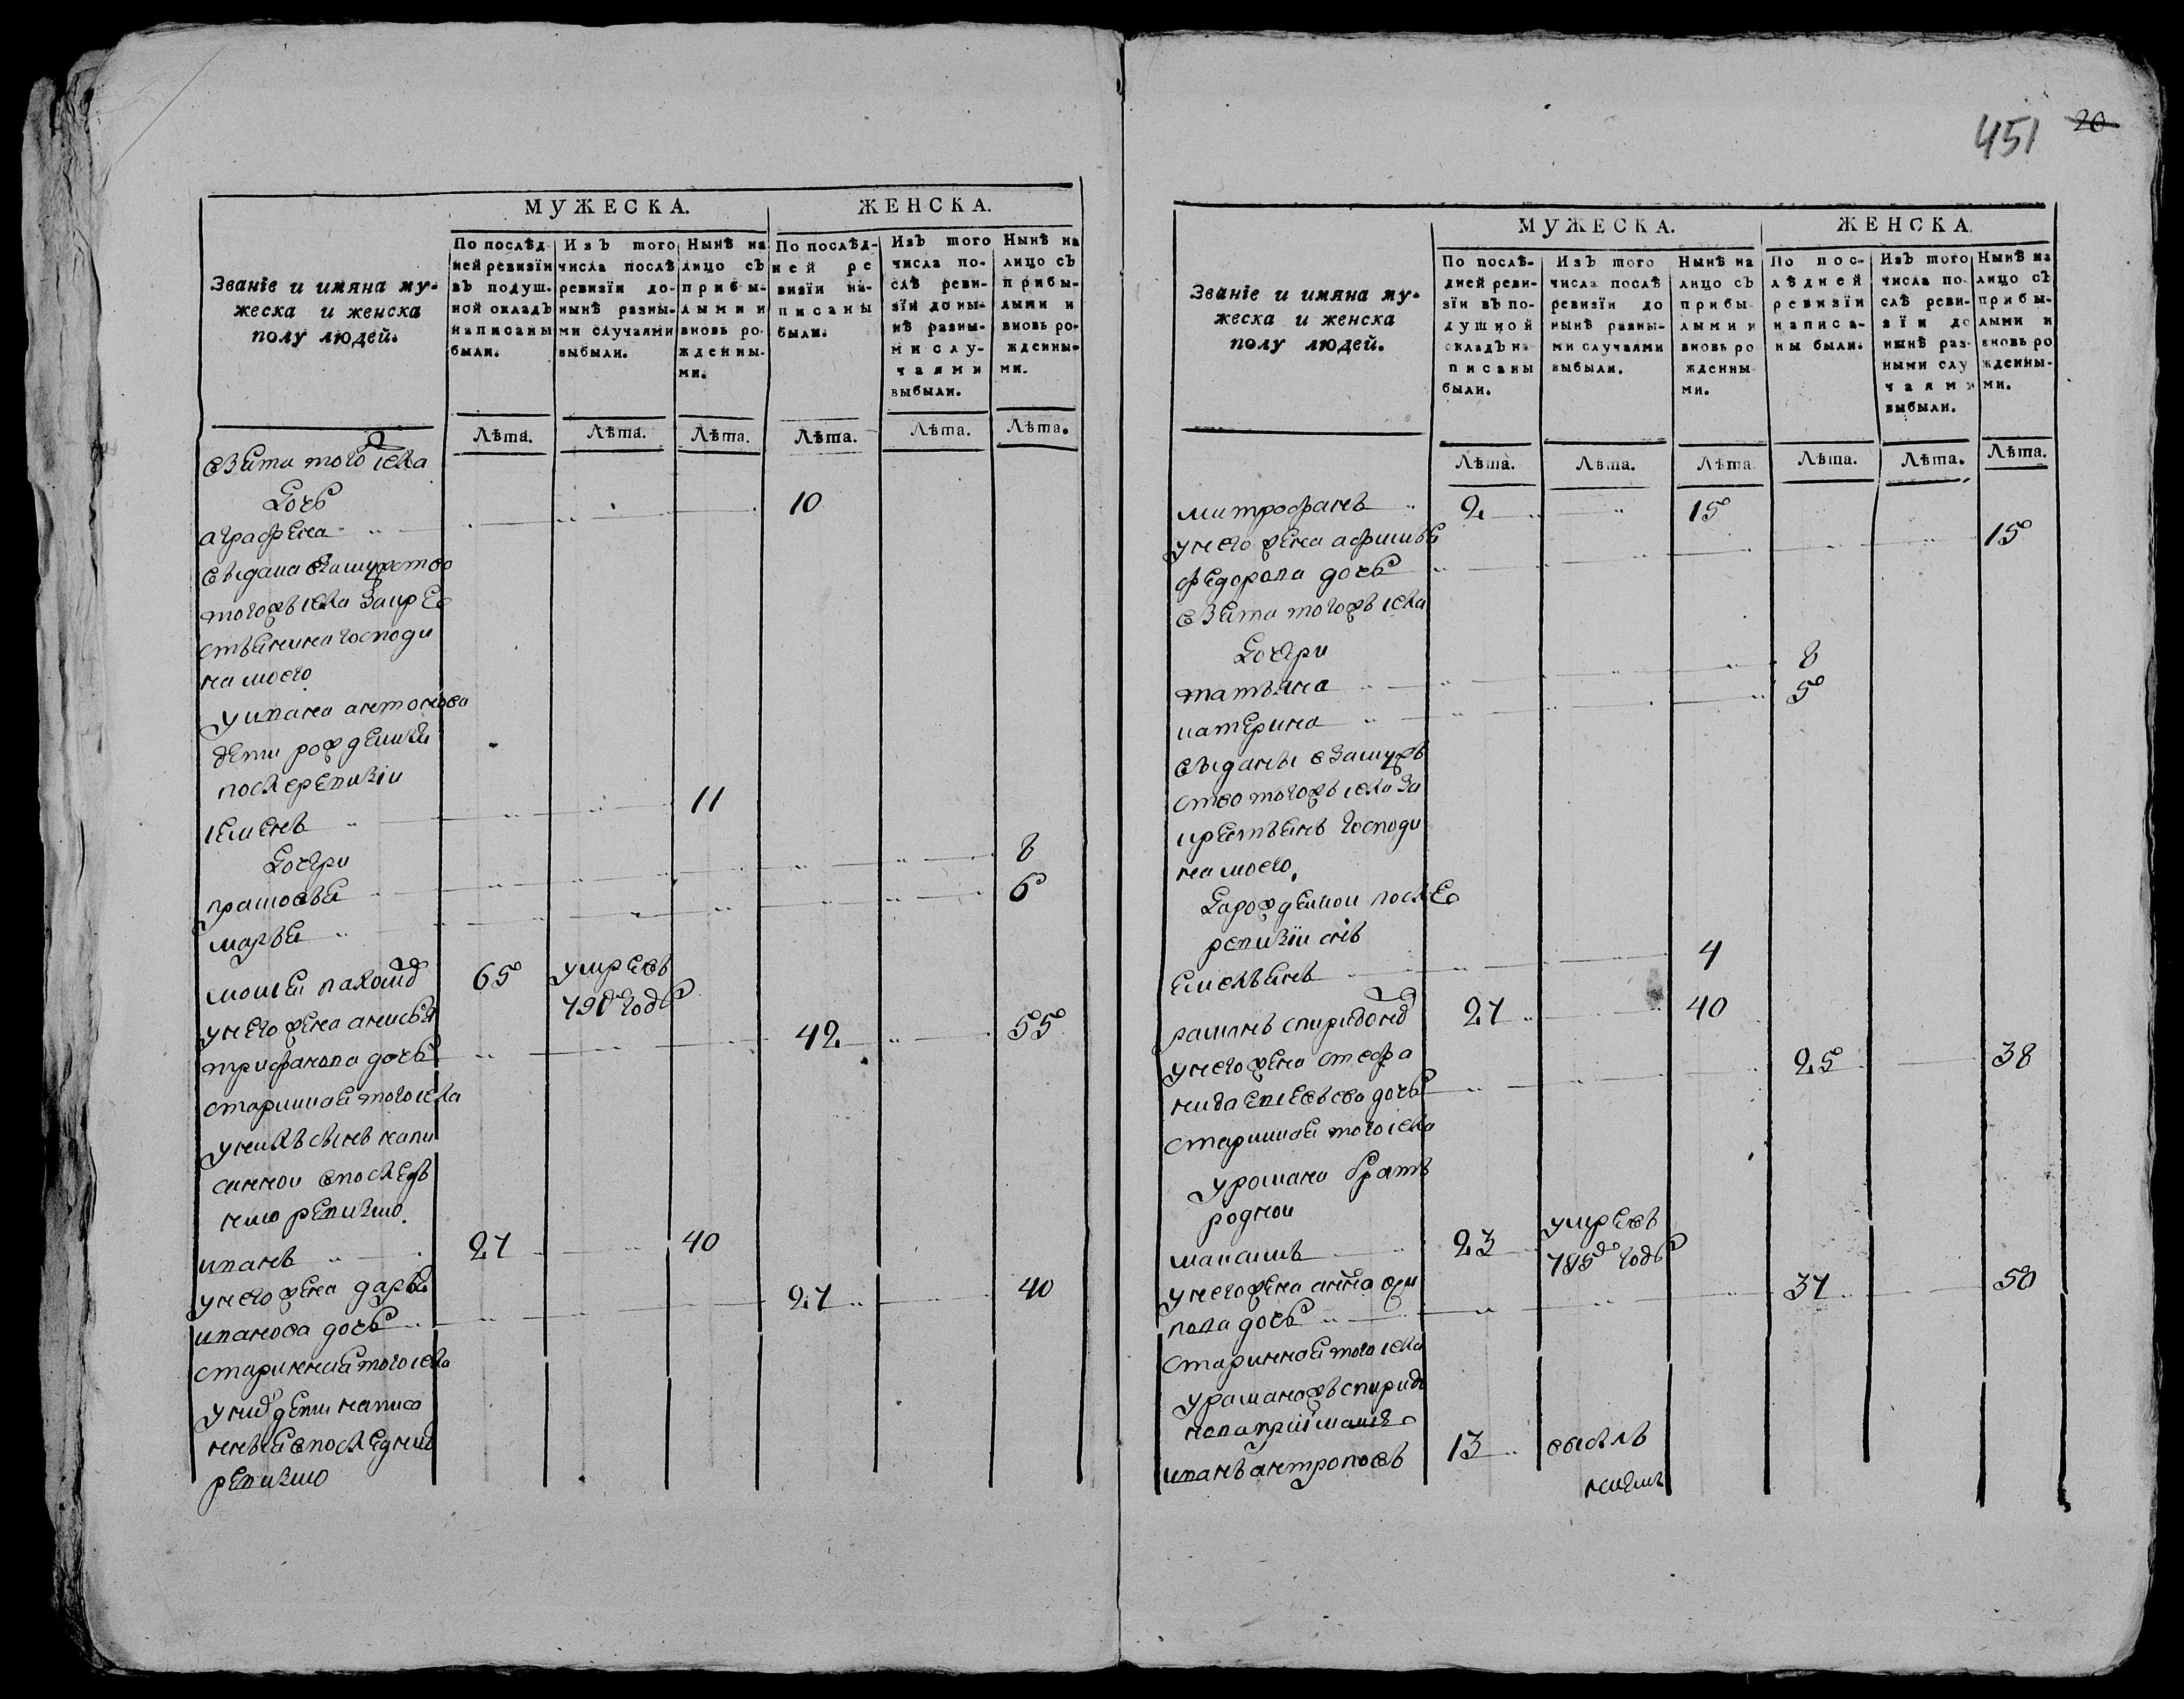 451 20
МУЖЕСКА. ЖЕНСКА.
Званїе и имяна му-
жеска и женска
полу людей.
По послѣд-
ней ревизїи
въ подуш-
ной окладъ
написаны
были.
Изъ того
числа послѣ
ревизїи до-
нынѣ разны-
ми случаями
выбыли.
Нынѣ на
лицо съ
прибы-
лыми и
вновь ро-
жденны-
ми.
По послѣд-
ней ре
визїи на-
писаны
были.
Изъ того
числа по-
слѣ реви-
зїи до ны-
нѣ разны-
ми слу-
чаями
выбыли.
Нынѣ на
лицо съ
прибы-
лыми и
вновь ро-
жденны-
ми.
Лѣта. Лѣта. Лѣта. Лѣта. Лѣта. Лѣта.
взята того села
дочь
аграфена 10
выдана взамужство
тогожъ села за кре
стьянина господи
на моего
у ивана антонова
дети рожденныя
после ревизіи
семенъ 11
дочери
прасковья 8
марья 6
мосей пахомов 65 умре въ
790 годѣ
у него жена анисья
трифонова дочь 42 55
старинная того села
у них сынъ напи
санной в последь
нюю ревизию
иванъ 27 40
у него жена дарья
иванова дочь 27 40
стариння того села
у них дети написа
нныя в последнию
ревизию
МУЖЕСКА. ЖЕНСКА.
Званїе и имяна му-
жеска и женска
полу людей.
По послѣ-
дней реви-
зїи въ по-
душной
окладъ на
писаны
были.
Изъ того
числа послѣ
ревизїи до
нынѣ разны-
ми случаями
выбыли.
Нынѣ на
лицо съ
прибы
лыми и
вновь ро
жденны
ми.
По пос-
лѣдней
ревизїи
написа-
ны были.
Изъ того
числа по-
слѣ реви-
зїи до
нынѣ раз-
ными слу
чаями
выбыли.
Нынѣ на
лицо съ
прибы-
лыми и
вновь ро
жденны-
ми.
Лѣта. Лѣта. Лѣта. Лѣта. Лѣта. Лѣта.
митрофанъ 2 15
у него жена афимья
федорова дочь 15
взята тогожъ села
дочери
татьяна 8
катерина 5
выданы взамуж
ство тогожъ села за
крестьянъ господи
на моего.
да рожденной после
ревизїи сынъ
емельянъ 4
раманъ спиридонов 27 40
у него жена стефа
нида дочь 25 38
старинная того села
у романа братъ
родной
максимъ 23 умре въ
785 годѣ
у него жена анна
пова дочь 37 50
старинная того села
у раманажъ спиридо
нова
иванъ антроповъ 13